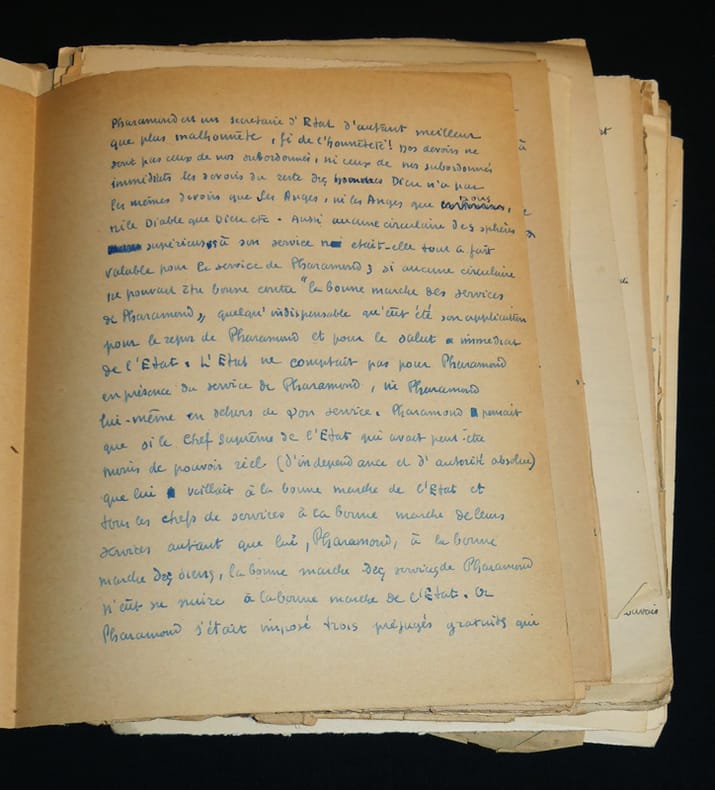 Pharamond est un secrétaire d'Etat d'autant meilleur
que plus malhonnête, fi de l'honnêteté! Nos devoirs ne
sont pas ceux de nos subordonnés, ni ceux de nos subordonnés
immédiats les devoirs du reste des hommes Dieu n'a pas
les mêmes devoirs que les Anges, ni les Anges que nous,
ni le Diable que Dieu etc. Aussi aucune circulaire des sphères
supérieures à son service n'était-elle tout à fait
valable pour le service de Pharamond; si aucune circulaire
ne pouvait être bonne contre "la bonne marche des services
de Pharamond", quelqu'indispensable qu'eût été son application
pour le repos de Pharamond et pour le salut immédiat
de l'Etat. L'Etat ne comptait pas pour Pharamond
en présence du service de Pharamond, ni Pharamond
lui-même en dehors de son service. Pharamond pensait
que si le Chef suprême de l'Etat qui avait peut-être
moins de pouvoir réel (d'indépendance et d'autorité absolue)
que lui veillait à la bonne marche de l'Etat et
tous les chefs de services à la bonne marche de leurs
services autant que lui, Pharamond, à la bonne
marche des siens, la bonne marche des services de Pharamond
n'eût su nuire à la bonne marche de l'Etat. Or
Pharamond s'était imposé trois préjugés gratuits qui